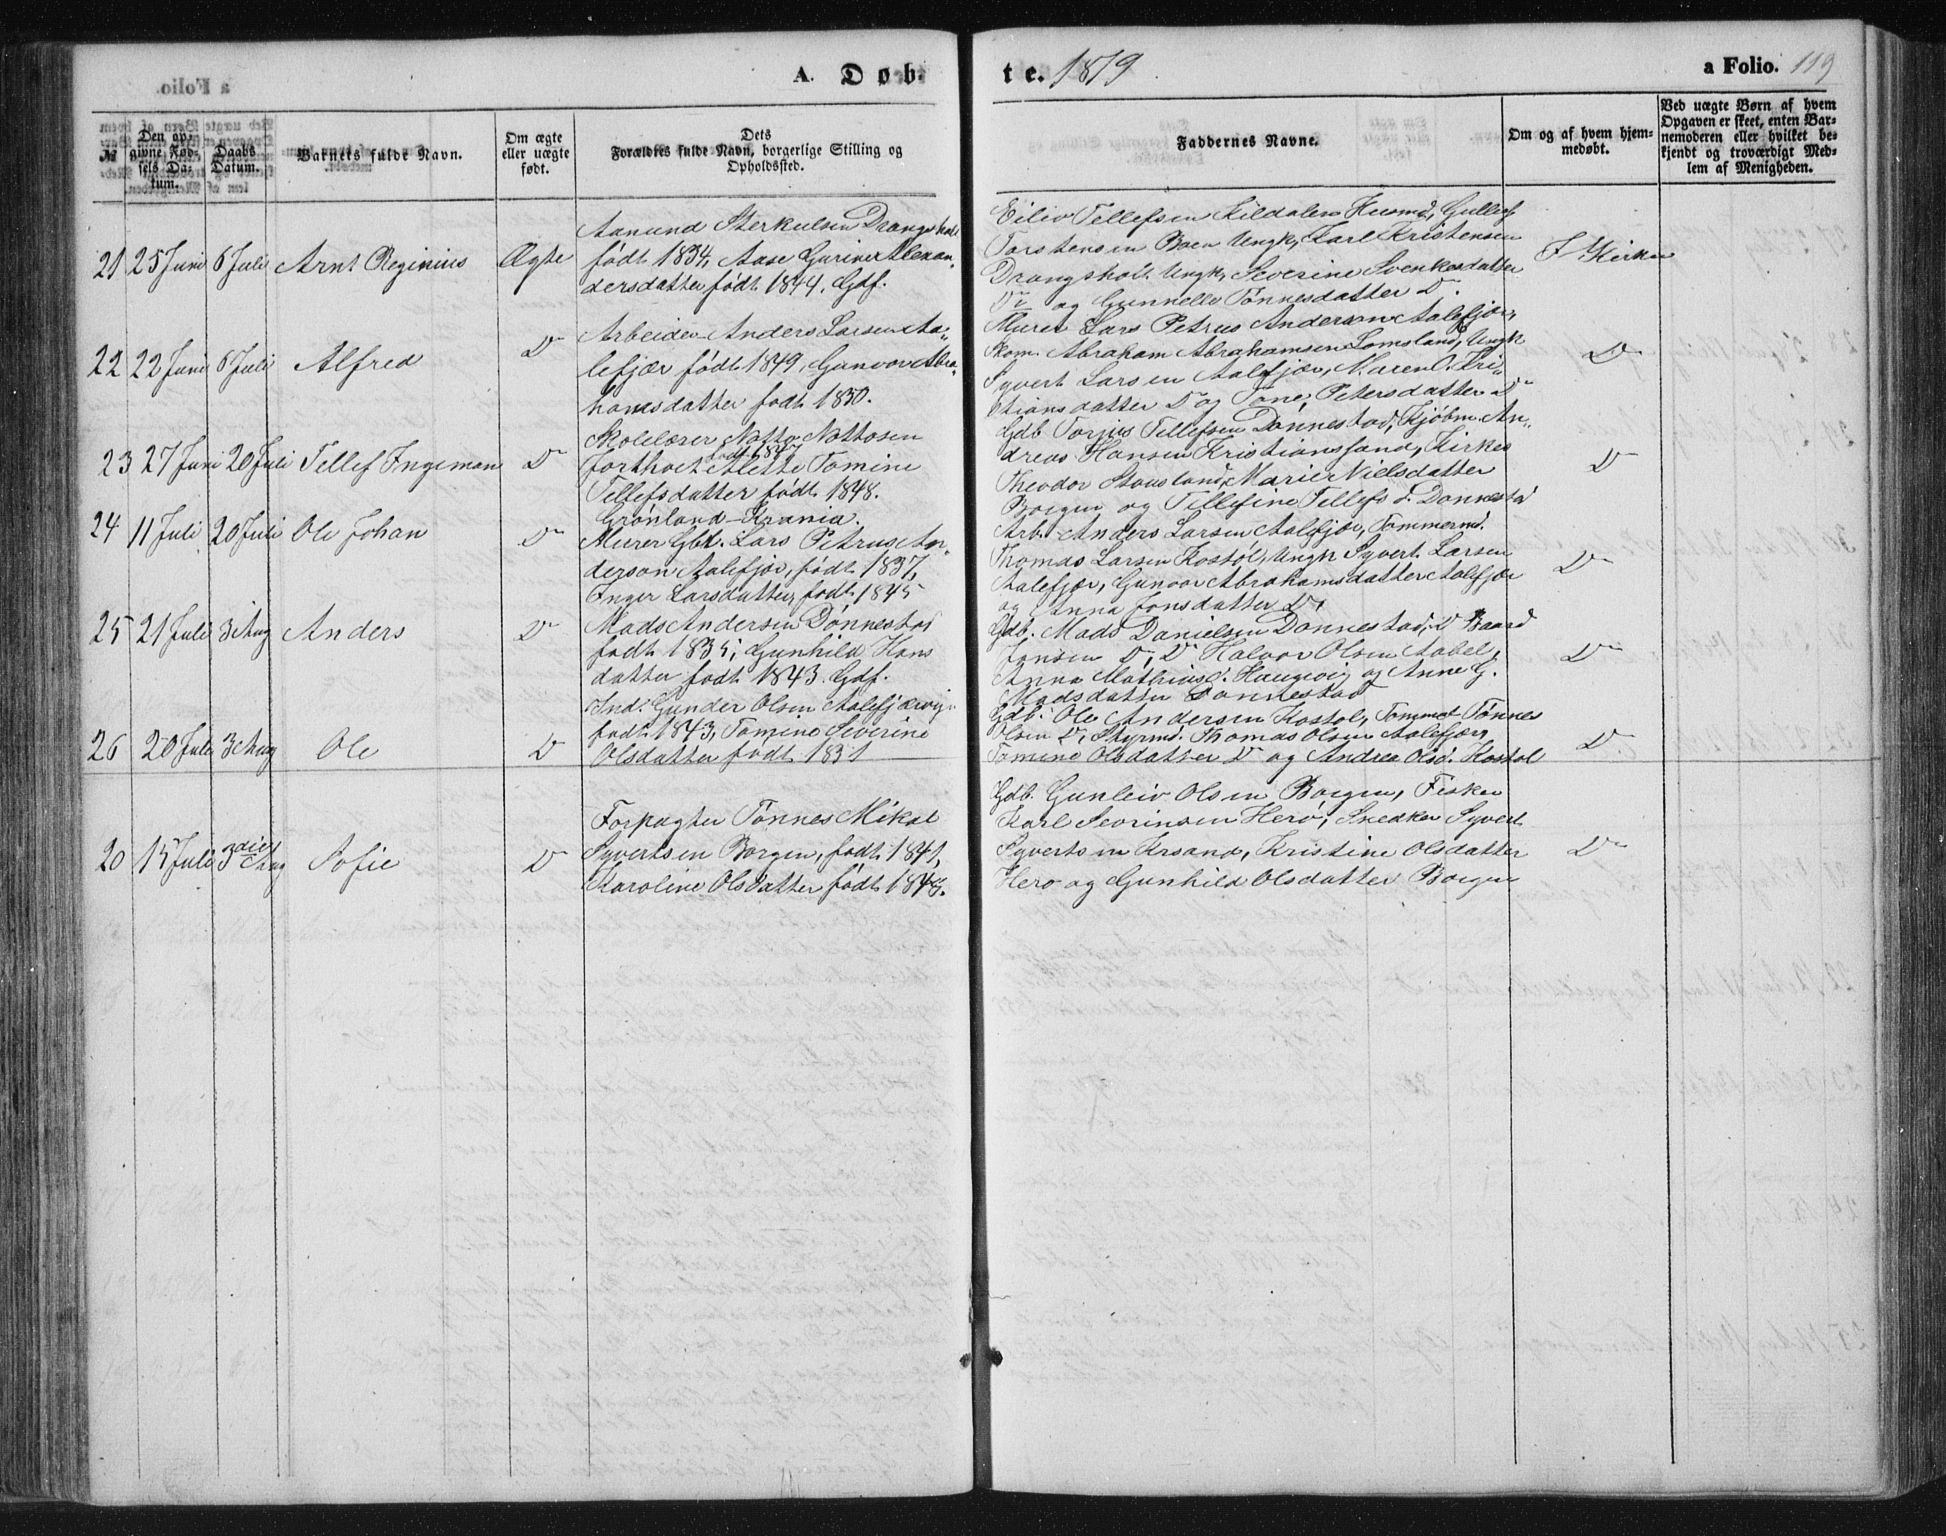 A. Døbte. 1879 a Folio. 119
№
Den opgivne Fødsels Datum.
Daabs Datum.
Barnets fulde Navn.
Om ægte eller uægte født.
Dets Forældres fulde Navn, borgerlige Stilling og Opholdssted.
Faddernes Navne.
Om og af hvem hjemmedøbt.
Ved uægte Børn af hvem Opgaven er skeet, enten Barnemoderen eller hvilket bekjendt og troværdigt Medlem af Menigheden.
21 25 Juni 6 Juli Arnt Reginius Ægte
Aanund Sterkulsen Drangsholt
født 1834, Aase Gurine Alexan-
dersdatter født 1844. Gdf.
Eiliv Tellefsen Kildalen Husmd, Gullef
Torstensen Boen Ungk, Karl Kristensen
Drangsholt Ungk, Severine Svenkesdatter
Do og Gunnelle Tønnesdatter Do.
I Kirken
22 22 Juni 6 Juli Alfred Do
Arbeider Anders Larsen Aa-
lefjær født 1849, Gunvor Abra-
hamsdatter født 1850.
Murer Lars Petrus Andersen Aalefjær,
Skom. Abraham Abrahamsen Lomsland, Ungk
Syvert Larsen Aalefjær, Maren O. Kri-
stiansdatter Do og Tone Petersdatter Do
Do
23 27 Juni 20 Juli Tellef Ingeman Do
Skolelærer Notto Nottosen
født 1847
Jorthoel Alette Tomine
Tellefsdatter født 1848.
Grønland - Krania.
Gdb Torjus Tellefsen Dønnestad, Kjøbm An-
dreas Hansen Kristianssand, Kirkes
Theodor Stousland, Marie Nielsdatter
Boegen og Tellefine Tellefs d. Dønnestad
Do
24 11 Juli 20 Juli Ole Johan Do
Murer Gbt. Lars Petrus An-
derson Aalefjær, født 1837,
Inger Larsdatter, født 1845
Arb. Anders Larsen Aalefjær, Tømmermd.
Thomas Larsen Kostøl, Ungk Syvert Larsen
Aalefjær, Gunvor Abrahamsdatter Aalefjær
og Anna Jonsdatter Do,
Do
25 21 Juli 3 Aug Anders Do
Mads Andersen Dønnestad
født 1835; Gunhild Hans
datter født 1843. Gdf.
Gdb. Mads Danielsen Dønnestad, Do Baard
Jensen Do, Do Halvor Olsen Aabel,
Anna Mathias d. Haugvig og Anne G.
Madsdatter Dønnestad
Do
26 20 Juli 3 Aug Ole Do
Ind. Gunder Olsen Aalefjærvig
født 1843, Tomine Severine
Olsdatter født 1851
Gdb. Ole Andersen Kostøl, Tømmerm Tønnes
Olsen Do, Styrmd. Thomas Olsen Aalefjær,
Tomine Olsdatter Do og Andrea Olsd. Kostøl
Do.
20 15 Juli 3die Aug Sofie Do
Forpagter Tønnes Mikal
Syvertsen Boegen, født 1841,
Karoline Olsdatter født 1848.
Gdb. Gunleiv Olsen Boegen, Fisker
Karl Sevrinsen Herø, Snedker Syvert
Syvertsen Krsand, Kristine Olsdatter
Herø og Gunhild Olsdatter Boegen
Do